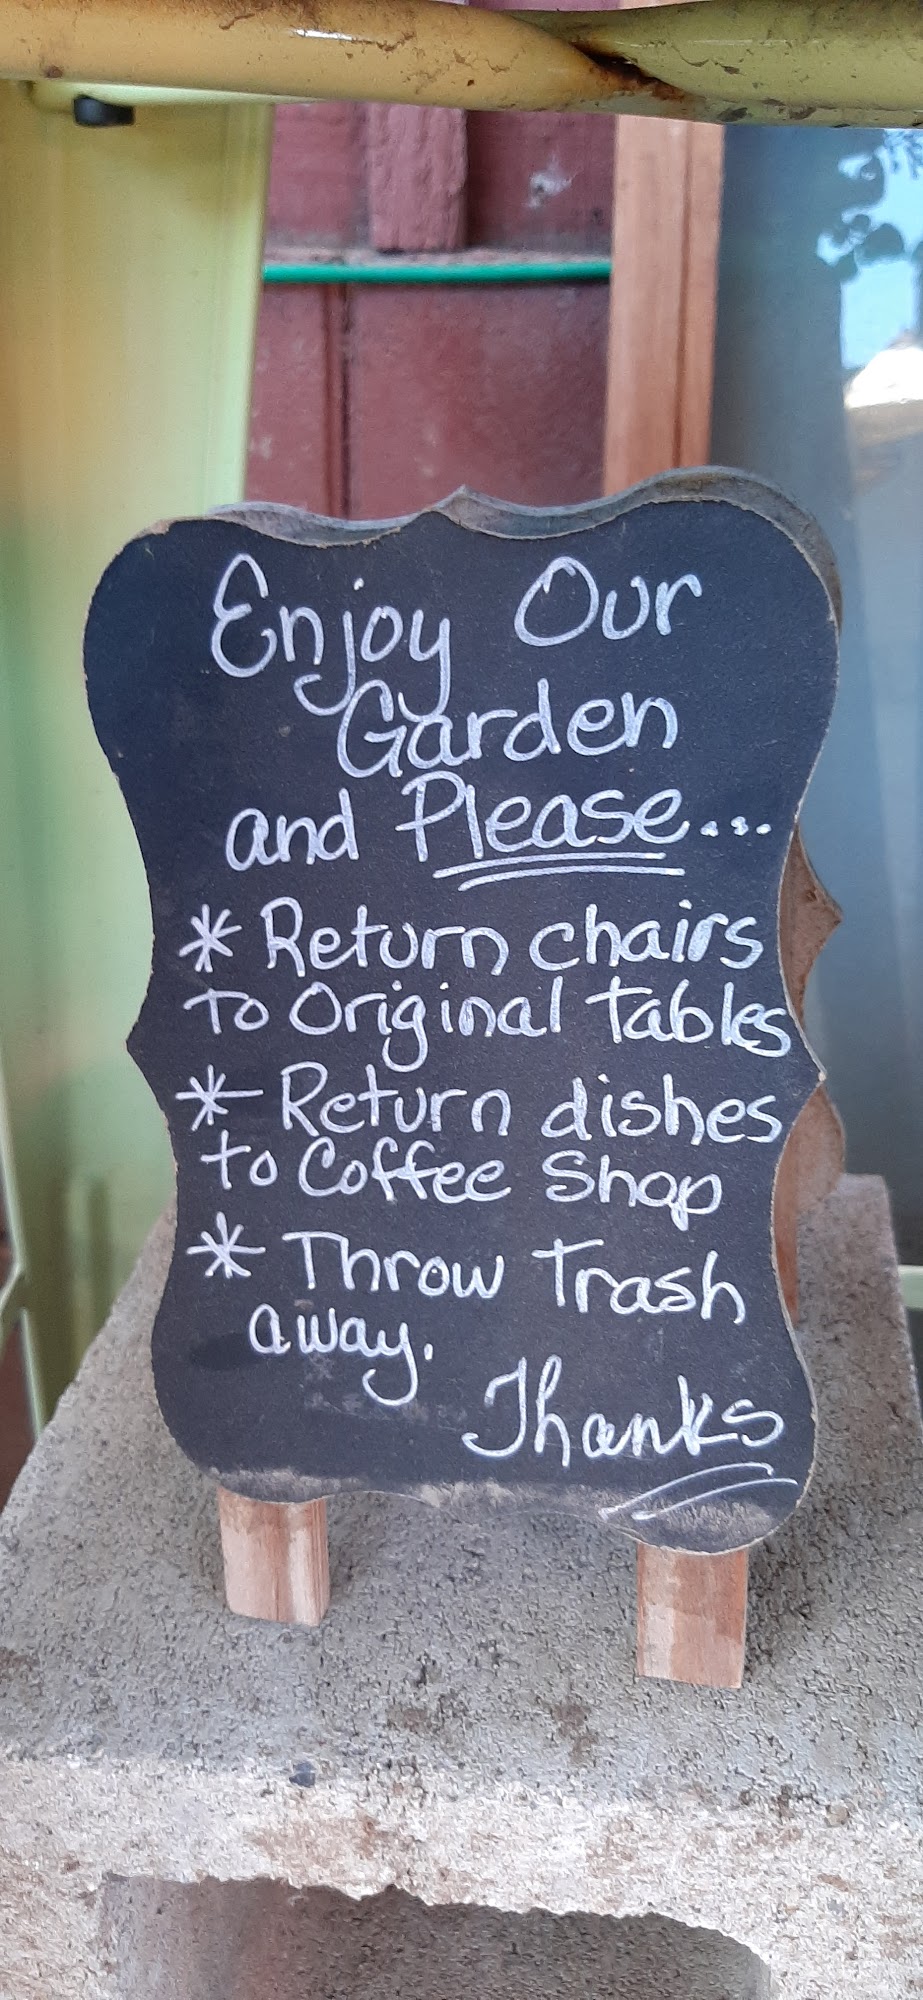 Enjoy Our
Garden
and Please...
* Return chairs
to Original tables
* Return dishes
to Coffee Shop
* Throw Trash
away.
Thanks